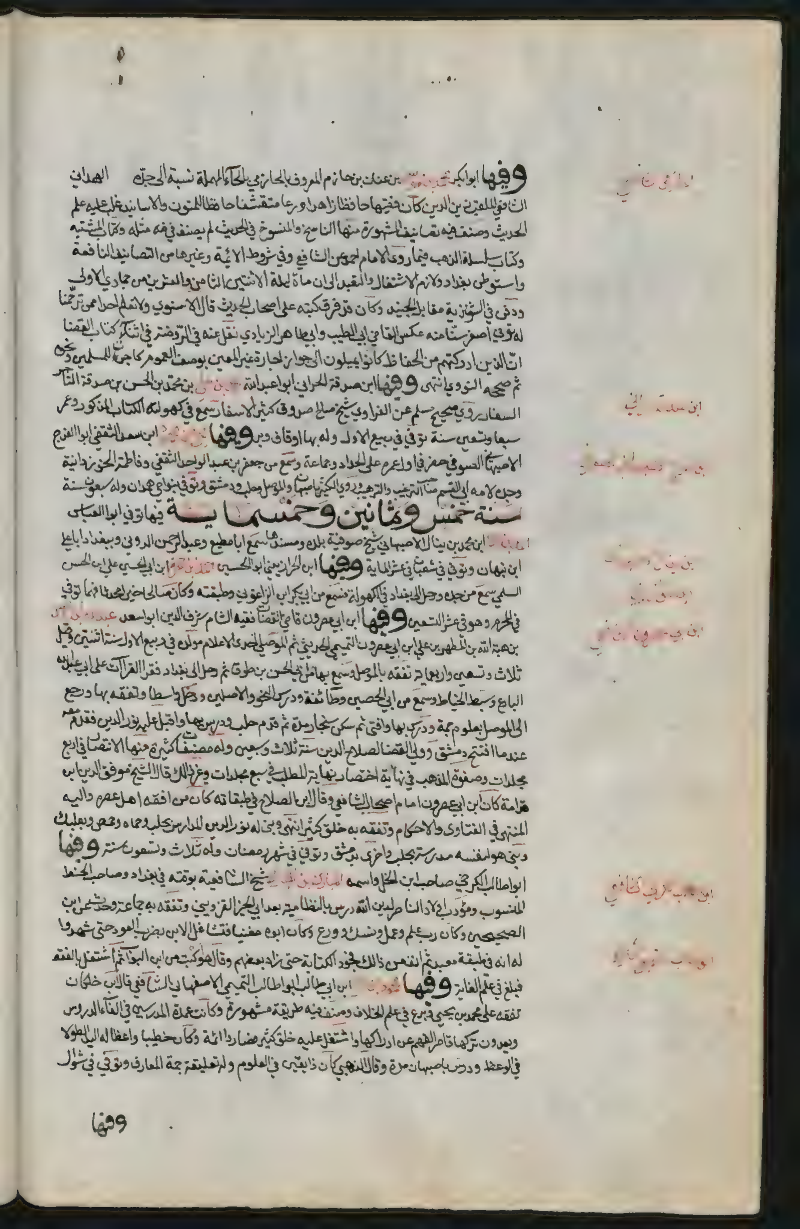 وفيها ابو بكر محمد بن موسى بن عثمان بن حازم المعروف بالحازمي بالحاء المهملة نسبة الى جده الهمداني
الشافعي الملقب زين الدين كان فقيها حافظا زاهدا ورعا متقشفا حافظا للمتون والاسانيد غلب عليه علم
الحديث وصنف فيه تصانيفه المشهورة منها الناسخ والمنسوخ في الحديث لم يصنف في فنه مثله وكتاب المشتبه
وكتاب سلسلة الذهب فيما روى الامام احمد عن الشافعي وشروط الائمة وغيرها من التصانيف النافعة
واستوطن بغداد ولازم الاشتغال والتعبد الى ان مات ليلة الاثنين الثامن والعشرين من جمادى الاولى
ودفن في الشونزية مقابل الجنيد وكان قد فرق كتبه على اصحاب الحديث قال الاسنوي ولا نعلم احدا ممن ترجمنا
له توفي اصغر سنا منه عكس القاضي ابي الطيب وابي طاهر الزيادي نقل عنه في الروضة في اثناء كتاب القضا
ان الذين ادركتهم من الحفاظ كانوا يميلون الى جواز اجازة غير المعين بوصف العموم كاجزت للمسلمين ونحوه
ثم صححه النووي انتهى وفيها ابن صدقة الحراني ابو عبد الله محمد بن علي بن محمد بن الحسن بن صدقة التاجر
السفار روى صحيح مسلم عن الفراوي شيخ صالح صدوق كثير الاسفار سمع في كهولته الكتاب المذكور وعمر
سبعا وتسعين سنة توفي في ربيع الاول وله بها اوقاف وبر وفيها ابن سعد الثقفي ابو الفرج
الاصبهاني الصوفي حضر في اول عمره على الحداد وجماعة وسمع من جعفر بن عبد الواحد الثقفي وفاطمة الجوزدانية
وجده لامه ابي القسم صاحب الترغيب والترهيب وروى الكثير باصبهان والموصل وحلب ودمشق وتوفي بنواحي همدان وله سبعون سنة
سنة خمس وثمانين وخمسماية فيها توفي ابو العباس
ابن محمد بن ينال الاصبهاني شيخ صوفية بلده ومسندها سمع ابا مطيع وعبد الرحمن الدوني وببغداد ابا علي
ابن نبهان وتوفي في شعبان في عشر الماية وفيها ابن ابو الحسين ابن ابي الحسن علي بن الحسن
السلمي سمع من جده ورحل الى بغداد في الكهولة فسمع من ابي بكر ابن الزاغوني وطبقته وكان صالحا خيرا محدثا فهما توفي
في المحرم وهو في عشر التسعين وفيها ابن ابي عصرون قاضي القضاة فقيه الشام شرف الدين ابو سعد عبد الله بن محمد
بن هبة الله بن المطهر بن علي ابن ابي عصرون التميمي الحديثي ثم الموصلي احد الاعلام مولده في ربيع الاول سنة اثنتين وقيل
ثلاث وتسعين واربعماية تفقه بالموصل وسمع بها من ابي الحسن بن طوق ثم رحل الى بغداد فقرا القراات على ابي عبد الله
البارع وسبط الخياط وسمع من ابي الحصين وطائفة ودرس النحو والاصلين ودخل واسط وتفقه بها ورجع
الى الموصل بعلوم جمة ودرس بها وافتى ثم سكن سنجار مدة ثم قدم حلب ودرس بها واقبل عليه نور الدين فقدم معه
عندما افتتح دمشق وولي القضا لصلاح الدين سنة ثلاث وسبعين وله مصنفات كثيرة منها الانتصاف في اربع
مجلدات وصفوة المذهب في نهاية اختصار نهاية المطلب في سبع مجلدات وغير ذلك قال الشيخ موفق الدين ابن
قدامة كان ابن ابي عصرون امام اصحاب الشافعي وقال ابن الصلاح في طبقاته كان من افقه اهل عصره واليه
المنتهى في الفتاوى والاحكام وتفقه به خلق كثير انتهى وبنى له نور الدين المدارس بحلب وحماه وحمص وبعلبك
وبنى هو لنفسه مدرسة بحلب واخرى بدمشق وتوفي في شهر رمضان وله ثلاث وتسعون سنة وفيها
ابو طالب الكرخي صاحب ابن الخل واسمه المبارك بن المبارك شيخ الشافعية بوقته في بغداد وصاحب الخط
المنسوب ومؤدب اولاد الناصر لدين الله درس بالنظامية بعد ابي الخير القزويني وتفقه به جماعة وحدث عن ابن
الحصين وكان رب علم وعمل ونسك وورع وكان ابوه مغنيا فتشاغل الابن بضرب العود حتى شهدوا
له انه في طبقة معبد ثم انف من ذلك فجود الكتابة حتى زاد بعضهم وقال هو اكتب من ابن البواب ثم اشتغل بالفقه
فبلغ في علم الغاية وفيها ابن ابي طالب ابو طالب التميمي الاصفهاني الشافعي قال ابن خلكان
تفقه على محمد بن يحيى وبرع في علم الخلاف وصنف فيه طريقة مشهورة وكانت عمدة المدرسين في القاء الدروس
ويعدون تركها قاصر الفهم عن ادراكها واشتغل عليه خلق كثير فصاروا ائمة وكان خطيبا واعظا له اليد الطولا
في الوعظ ودرس باصبهان مدة وقال الذهبي كان ذا تفنن في العلوم وله تعليقة جمة المعارف وتوفي في شوال
وفيها